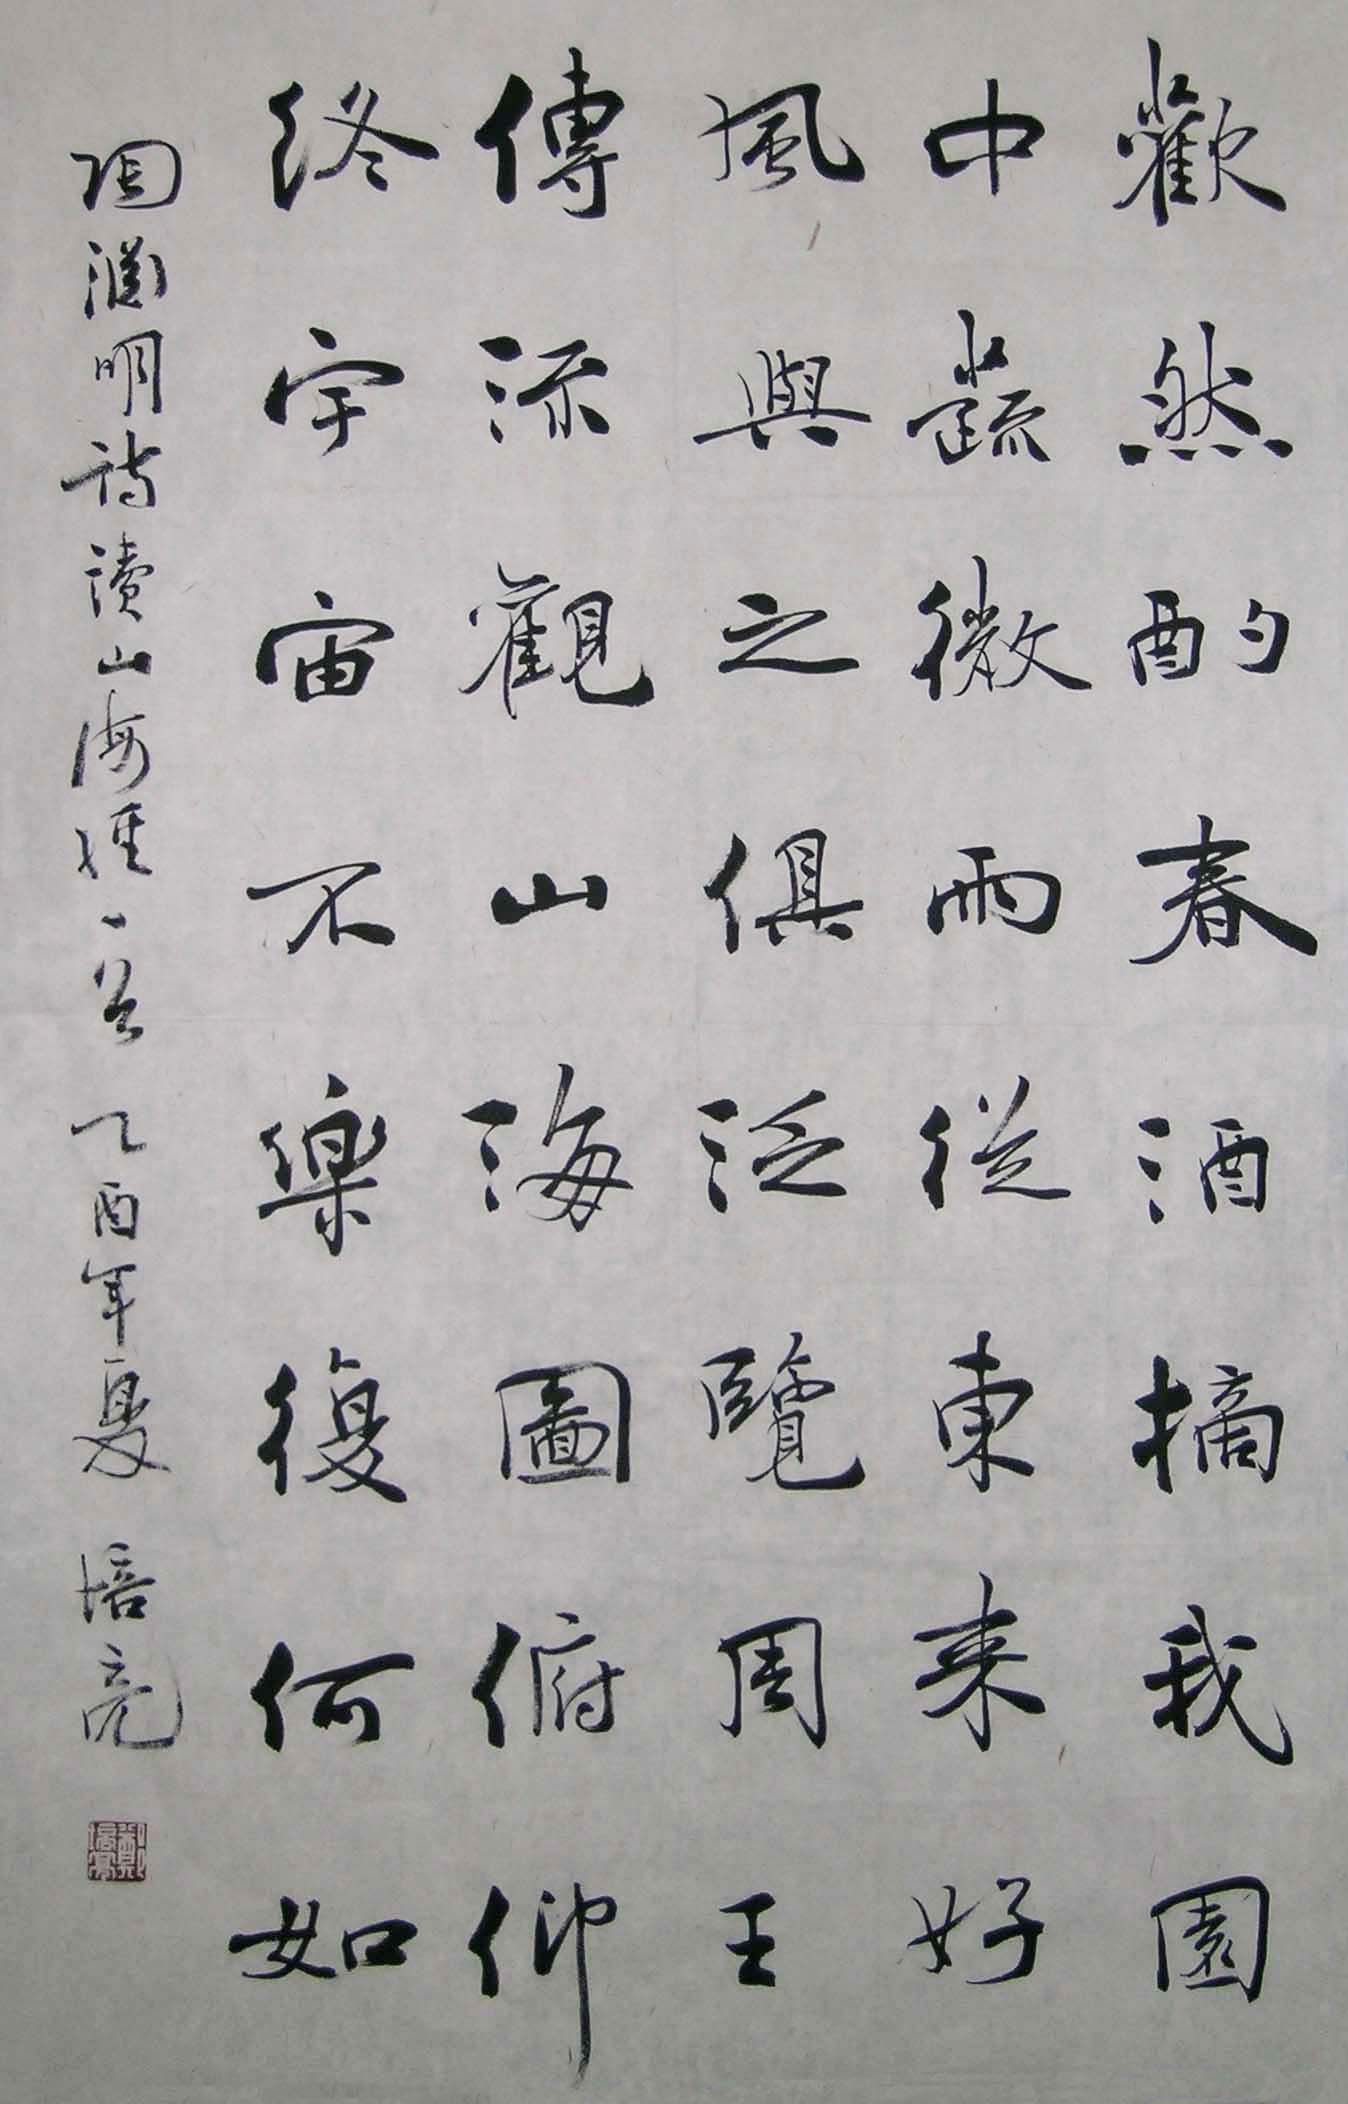 歡然酌春酒摘我園
中蔬微雨從東来好
風與之俱泛覽周王
傳流觀山海圖俯仰
終宇宙不樂復何如
陶淵明詩讀山海經一首 乙酉年夏 培亮